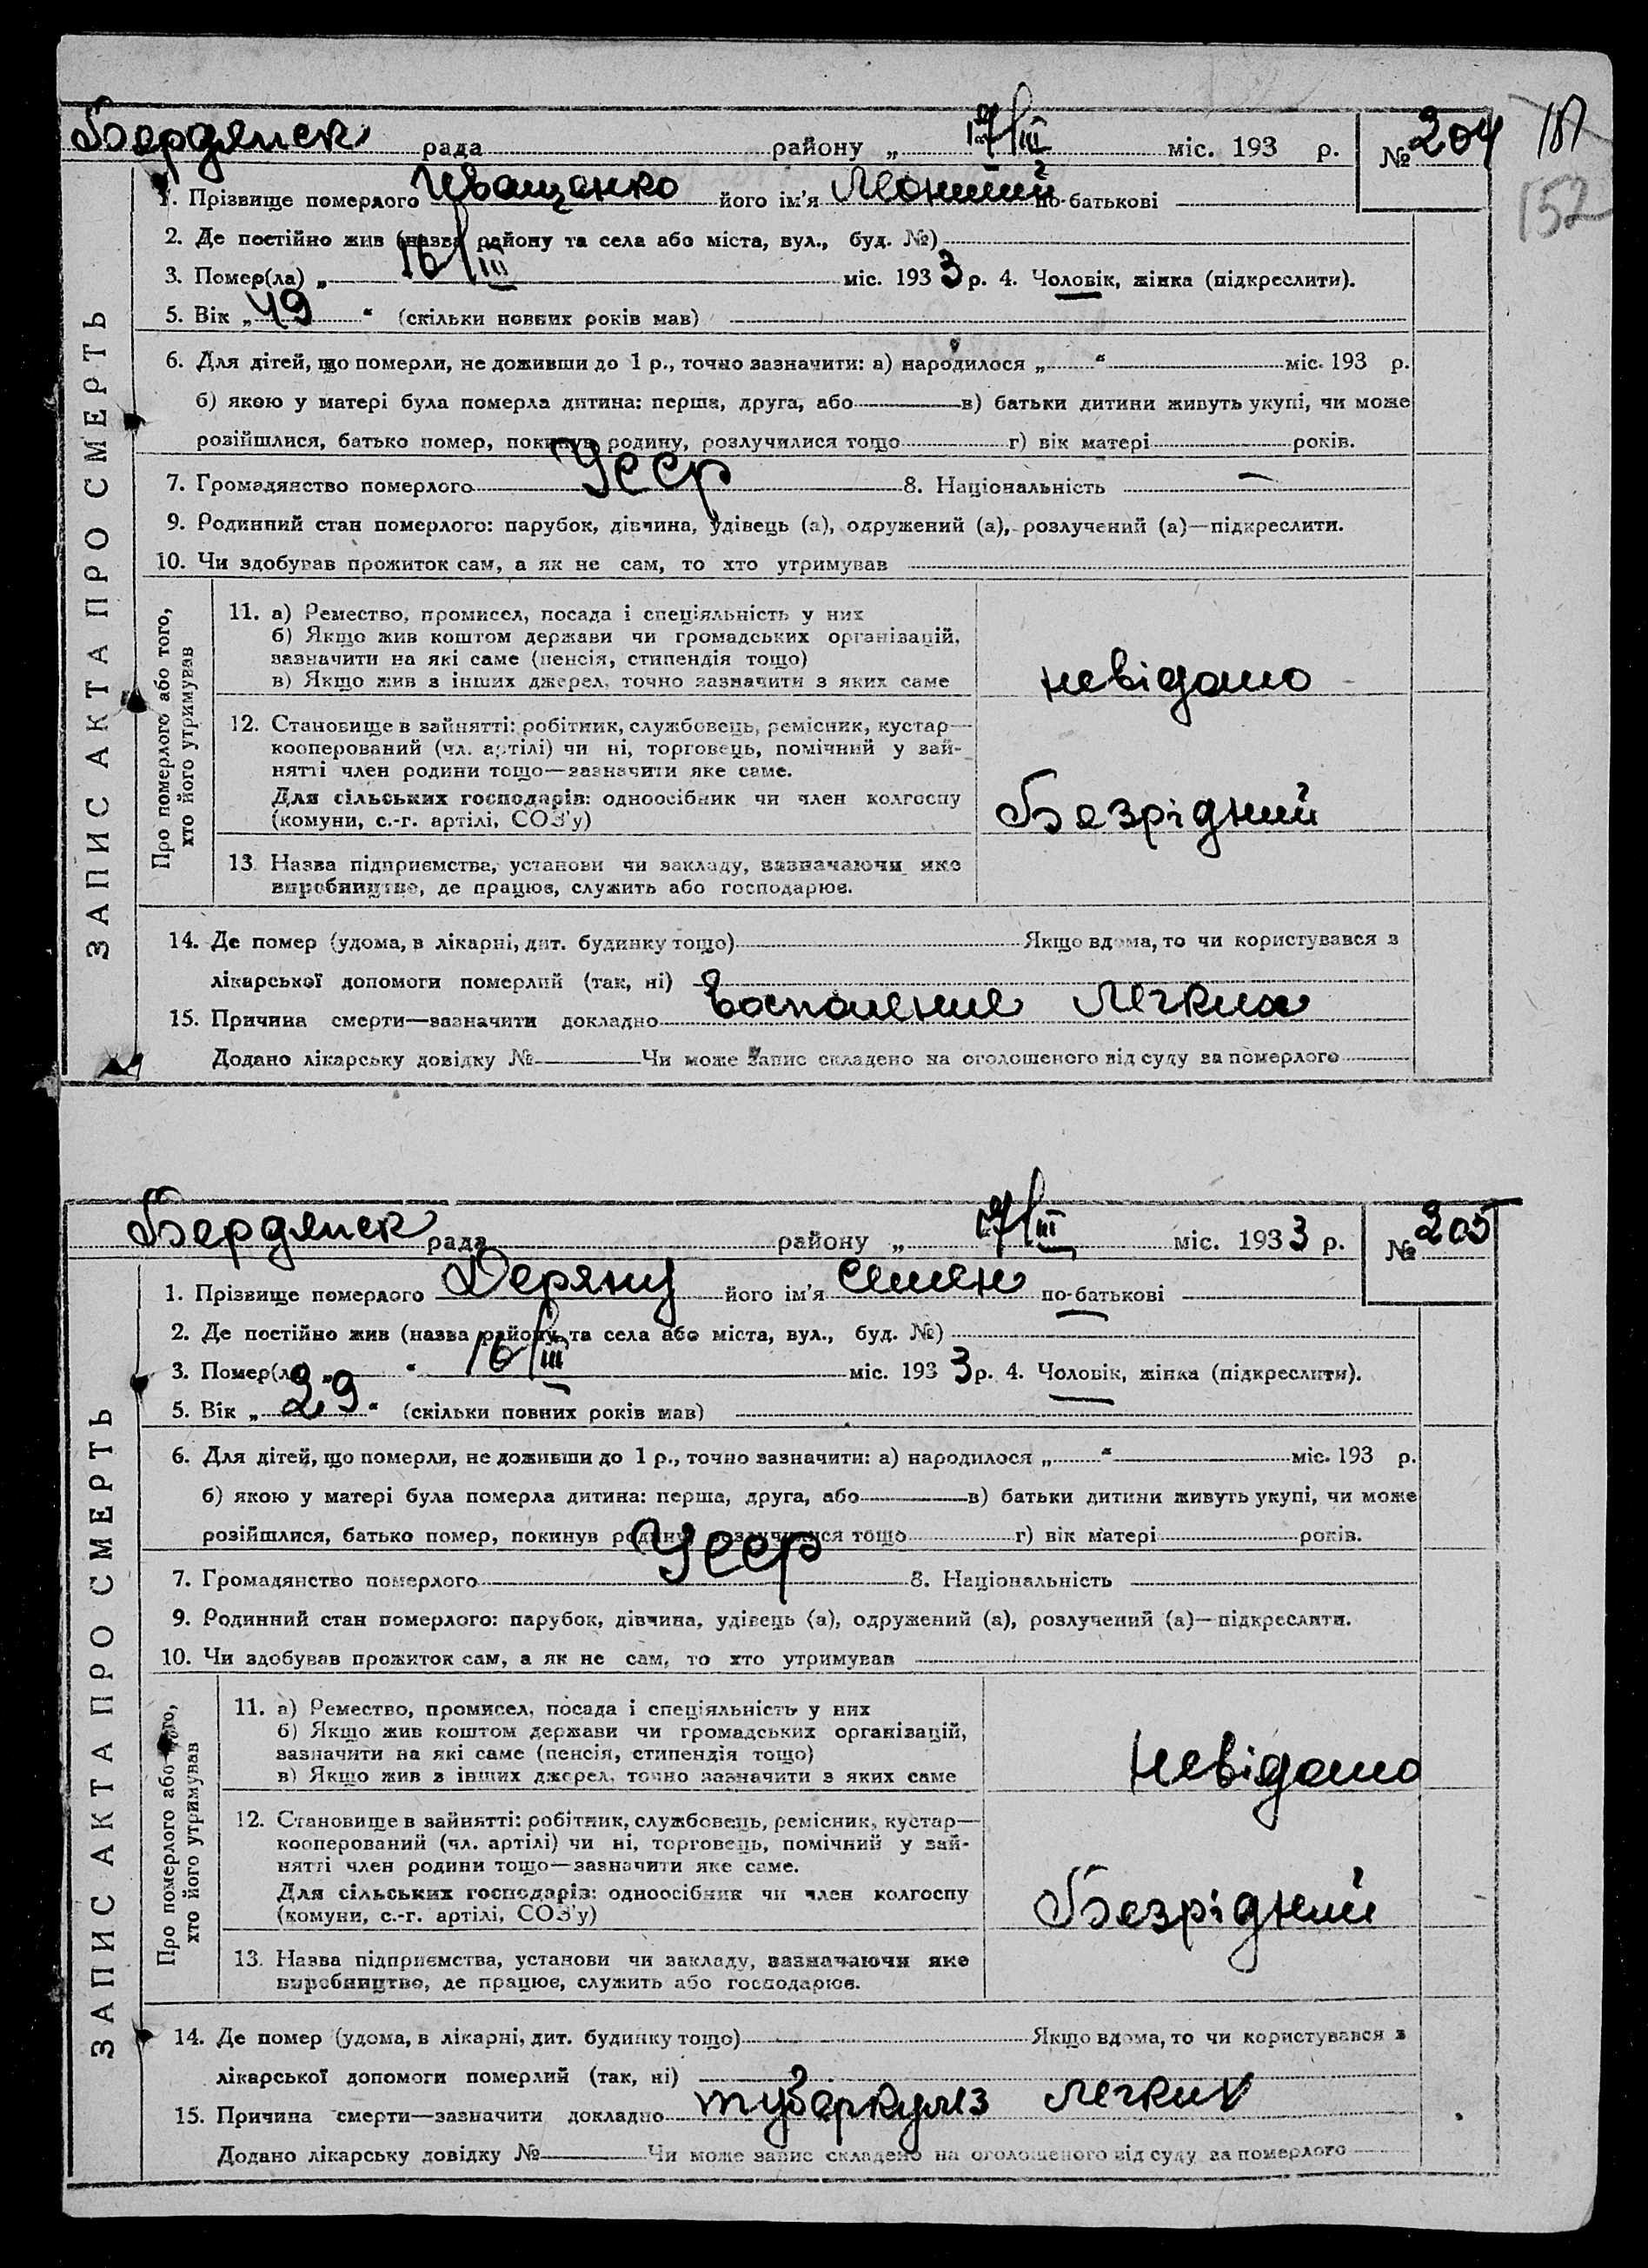 Бердянск рада району „ 17/III міс. 193 р. № 204
152
1. Прізвище померлого Иващенко його ім'я Леонтий по-батькові
2. Де постійно жив (назва району та села або міста, вул., буд. №)
3. Помер(ла) „ 16/III міс. 193 3 р. 4. Чоловік, жінка (підкреслити).
5. Вік „ 49 “ (скільки повних років мав)
6. Для дітей, що померли, не доживши до 1 р., точно зазначити: а) народилося „ “ міс. 193 р.
б) якою у матері була померла дитина: перша, друга, або в) батьки дитини живуть укупі, чи може
розійшлися, батько помер, покинув родину, розлучилися тощо г) вік матері років.
7. Громадянство померлого Усср 8. Національність —
9. Родинний стан померлого: парубок, дівчина, удівець (а), одружений (а), розлучений (а)—підкреслити.
10. Чи здобував прожиток сам, а як не сам, то хто утримував
ЗАПИС АКТА ПРО СМЕРТЬ
Про померлого або того,
хто його утримував
11. а) Ремество, промисел, посада і спеціяльність у них
б) Якщо жив коштом держави чи громадських організацій,
зазначити на які саме (пенсія, стипендія тощо)
в) Якщо жив з інших джерел, точно зазначити з яких саме
невідомо
12. Становище в зайнятті: робітник, службовець, ремісник, кустар—
кооперований (чл. артілі) чи ні, торговець, помічний у зай-
нятті член родини тощо—зазначити яке саме.
Для сільських господарів: одноосібник чи член колгоспу
(комуни, с.-г. артілі, СОЗ'у)
Безрідний
13. Назва підприємства, установи чи закладу, зазначаючи яке
виробництво, де працює, служить або господарює.
14. Де помер (удома, в лікарні, дит. будинку тощо) Якщо вдома, то чи користувався з
лікарської допомоги померлий (так, ні)
15. Причина смерти—зазначити докладно воспаление Легких
Додано лікарську довідку № Чи може запис складено на оголошеного від суду за померлого
Бердянск рада району „ 17/III міс. 193 3 р. № 205
1. Прізвище померлого його ім'я Семен по-батькові
2. Де постійно жив (назва району та села або міста, вул., буд. №)
3. Помер(ла) „ “ 16/III міс. 193 3 р. 4. Чоловік, жінка (підкреслити).
5. Вік „ 29 “ (скільки повних років мав)
6. Для дітей, що померли, не доживши до 1 р., точно зазначити: а) народилося „ “ міс. 193 р.
б) якою у матері була померла дитина: перша, друга, або в) батьки дитини живуть укупі, чи може
розійшлися, батько помер, покинув родину, розлучилися тощо г) вік матері років.
7. Громадянство померлого Усср 8. Національність
9. Родинний стан померлого: парубок, дівчина, удівець (а), одружений (а), розлучений (а)—підкреслити.
10. Чи здобував прожиток сам, а як не сам, то хто утримував
ЗАПИС АКТА ПРО СМЕРТЬ
Про померлого або того,
хто його утримував
11. а) Ремество, промисел, посада і спеціяльність у них
б) Якщо жив коштом держави чи громадських організацій,
зазначити на які саме (пенсія, стипендія тощо)
в) Якщо жив з інших джерел, точно зазначити з яких саме
Невідомо
12. Становище в зайнятті: робітник, службовець, ремісник, кустар—
кооперований (чл. артілі) чи ні, торговець, помічний у зай-
нятті член родини тощо—зазначити яке саме.
Для сільських господарів: одноосібник чи член колгоспу
(комуни, с.-г. артілі, СОЗ'у)
Безрідний
13. Назва підприємства, установи чи закладу, зазначаючи яке
виробництво, де працює, служить або господарює.
14. Де помер (удома, в лікарні, дит. будинку тощо) Якщо вдома, то чи користувався з
лікарської допомоги померлий (так, ні)
15. Причина смерти—зазначити докладно туберкулез легких
Додано лікарську довідку № Чи може запис складено на оголошеного від суду за померлого